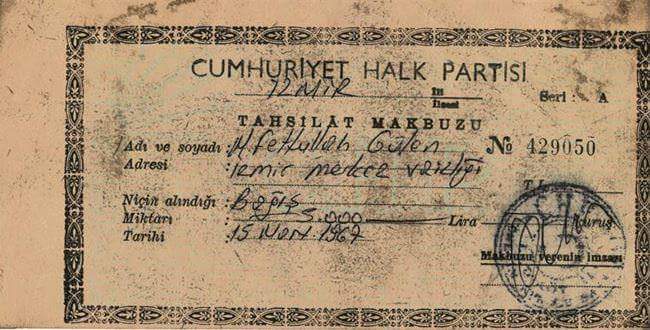 CUMHURİYET HALK PARTİSİ
İZMİR İli
İlçesi
Seri : A
TAHSİLÂT MAKBUZU
Adı ve soyadı : M. Fettullah Gülen № 429050
Adresi : izmir merkez vaizliği
Niçin alındığı : Bağış
Miktarı : 5.000 Lira Kuruş
Tarihi : 15 1967
Makbuzu verenin imzası